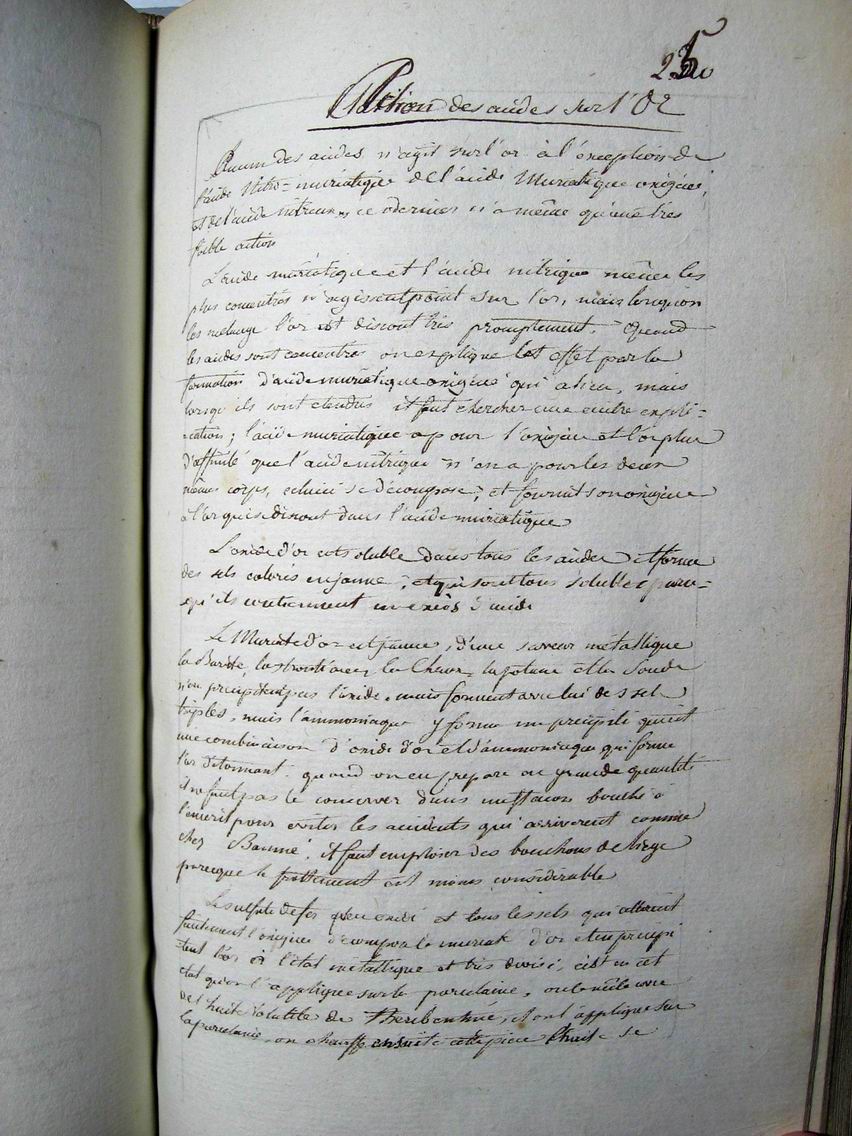 Action des acides sur l'Or
Aucun des acides n'agit sur l'or à l'exception de
l'acide Nitro-muriatique de l'acide Muriatique oxigéné,
et de l'acide nitreux, ce dernier n'a même qu'une très
foible action
L'acide muriatique et l'acide nitrique même les
plus concentrés n'agissent point sur l'or, mais lorsqu'on
les mélange l'or est dissout très promptement. Quand
les acides sont concentrés on explique cet effet par la
formation d'acide muriatique oxigéné qui a lieu, mais
lorsqu'ils sont etendus il faut chercher une autre expli-
-cation; l'acide muriatique a pour l'oxigène et l'or plus
d'affinité que l'acide nitrique n'en a pour les deux
mêmes corps, celui ci se décompose, et fournit son oxigène
à l'or qui se dissout dans l'acide muriatique
L'oxide d'or est soluble dans tous les acides et forme
des sels colorés en jaune, et qui sont tous solubles parce-
qu'ils contiennent un excès d'acide
Le Muriate d'or est jaune, d'une saveur metallique
la Barite, la strontiane, la Chaux, la potasse et la Soude
n'en précipitent pas l'oxide, mais forment avec lui des sels
triples, mais l'ammoniaque y forme un précipité qui est
une combinaison d'oxide d'or et d'ammoniaque qui forme
l'or détonnant. quand on en prepare en grande quantité
il ne faut pas le conserver dans un flacon bouché à
l'émeri pour eviter les accidents qui arriverent comme
chez Baumé, il faut employer des bouchons de liege
parceque le frottement est moins considérable
Le sulfate de fer peu oxidé et tous les sels qui attirent
fortement l'oxigène décompose le muriate d'or et en precipi
tent l'or à l'état métallique et très divisé, c'est en cet
état qu'on l'applique sur la porcelaine, on le mêle avec
de l'huile volatile de Therebentine, et on l'applique sur
la porcelaine, on chauffe ensuite cette pièce l'huile se